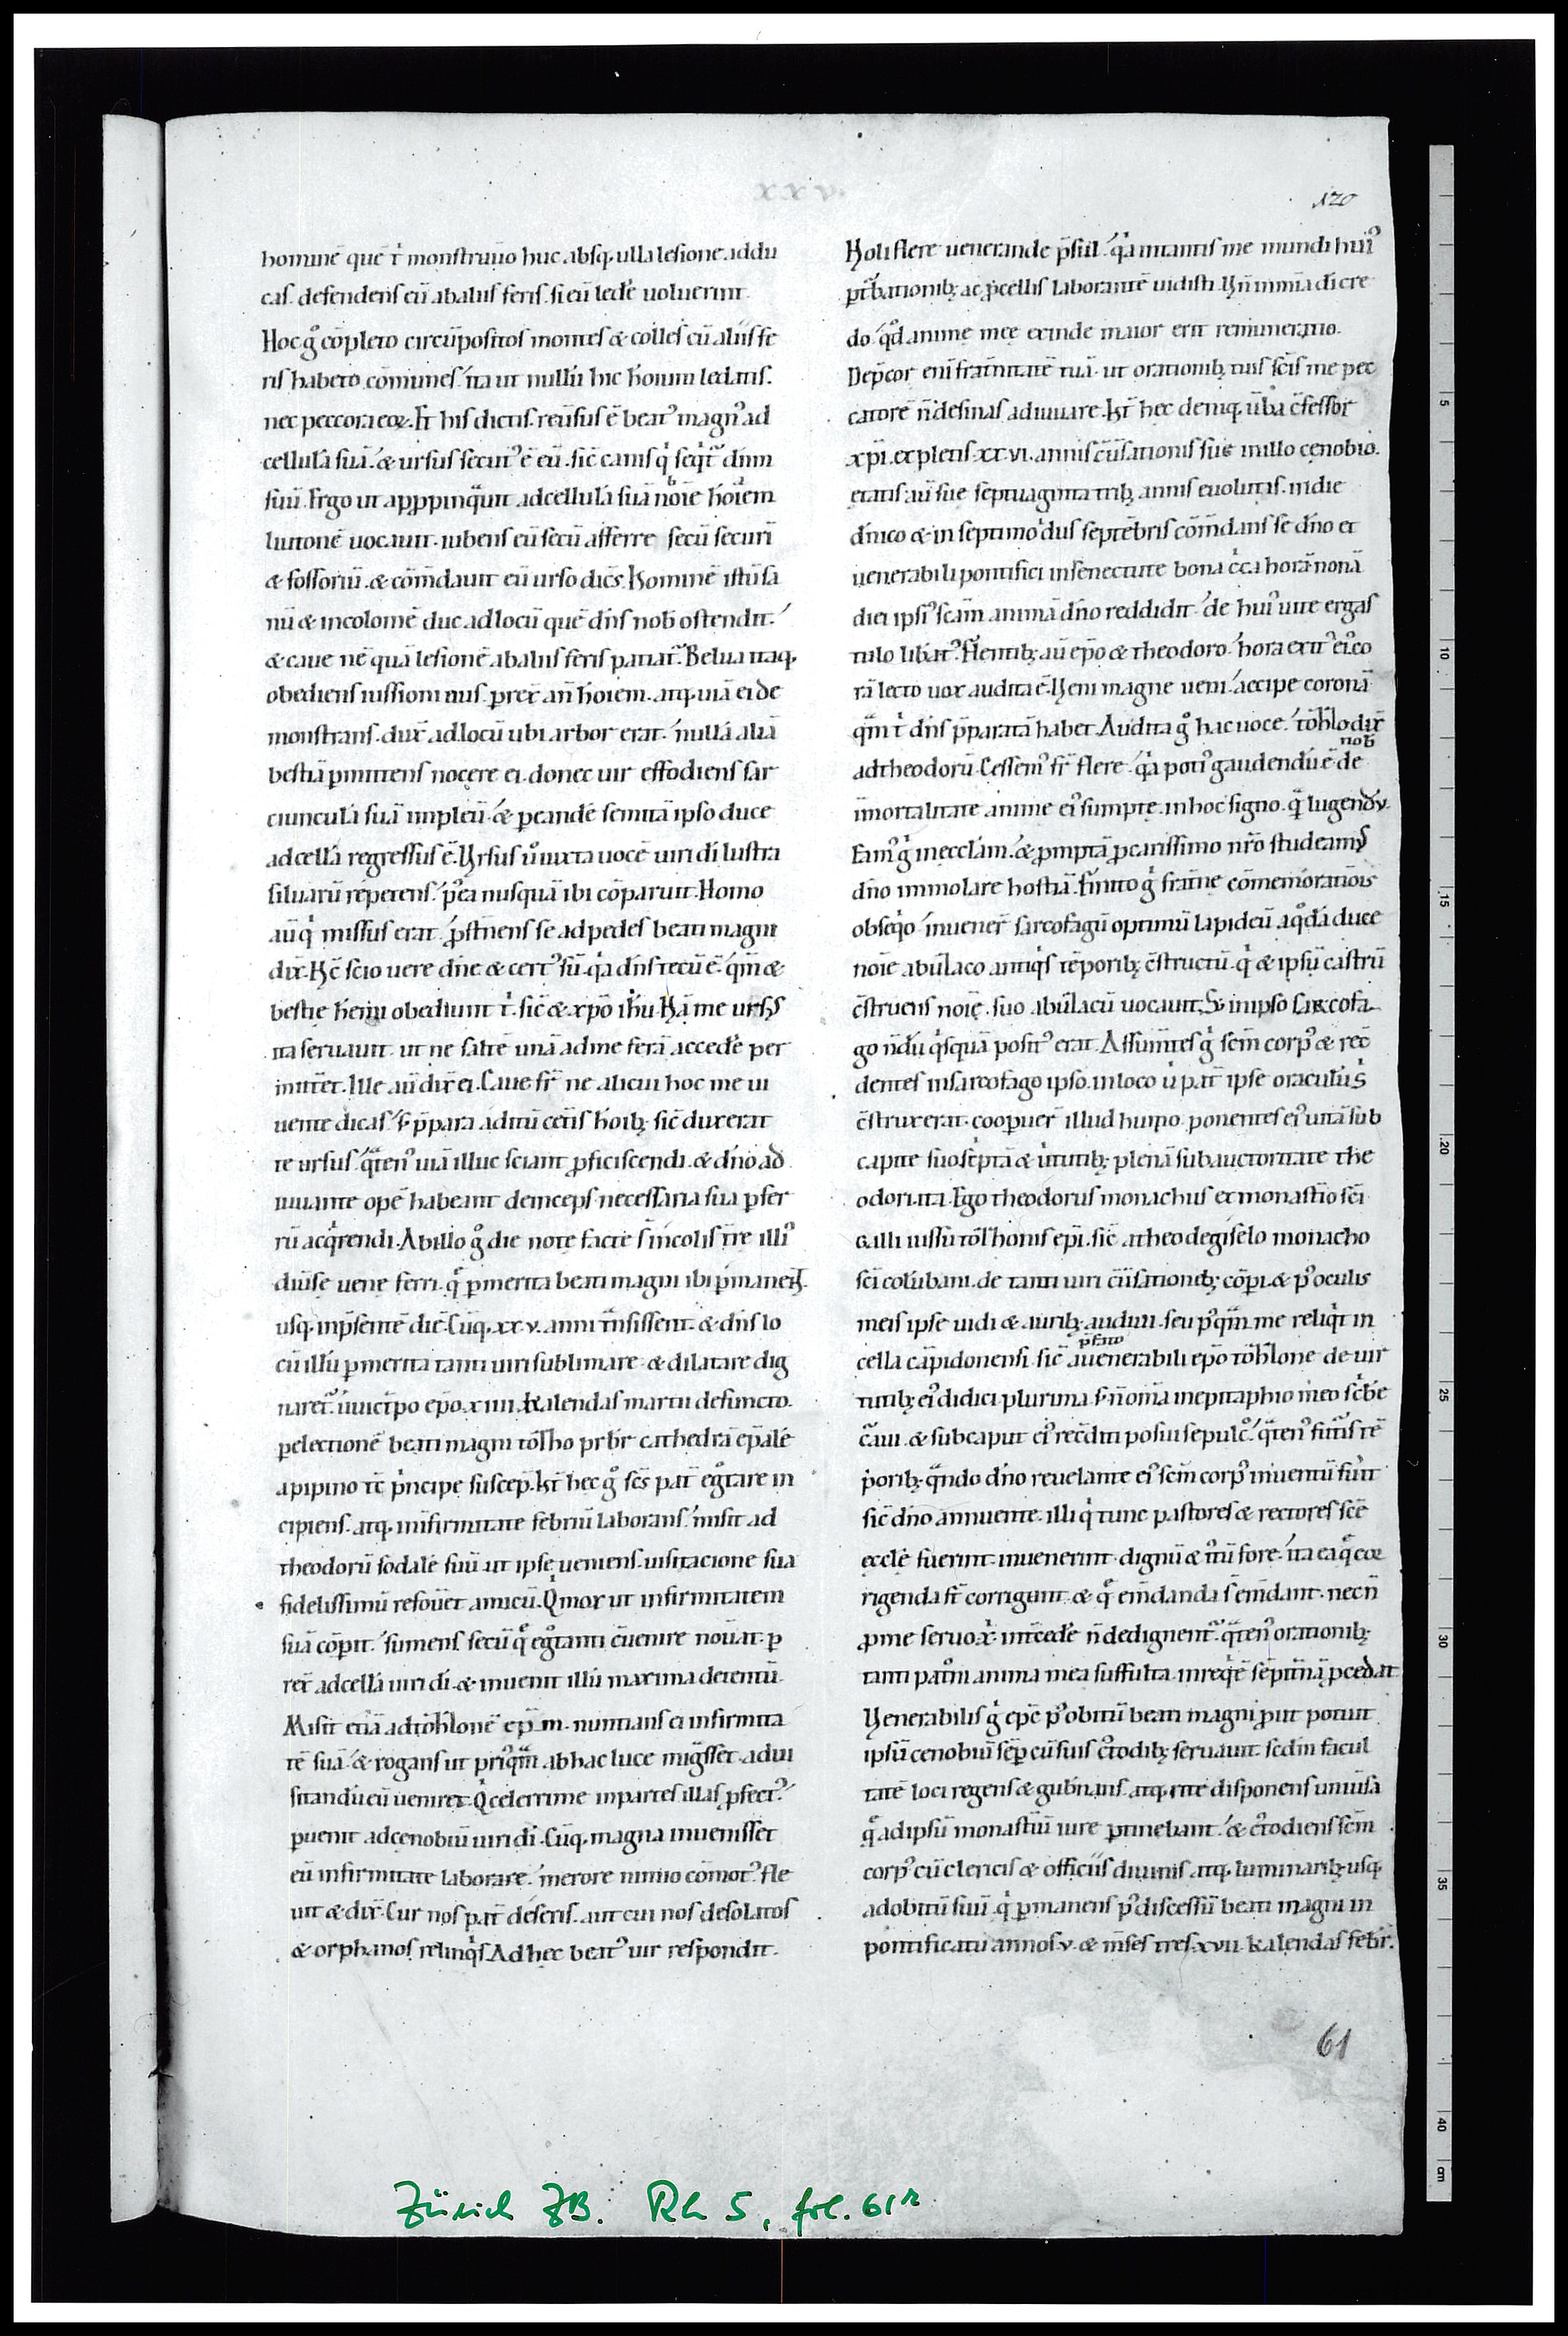 xxv.
120
hominē quē t̓ monstrauero huc absq; ulla lesione addu
cas. defendens eū ab aliis feris. si eū lede᷑ uoluerint.
Hoc g̊ cōpleto circūpositos montes & colles cū aliis fe
ris habeto cōmunes. ita ut nullū hic hoium ledatis.
nec peccora eoꝝ. Et his dictis. reu͛sus ē beat᷒ magn᷒ ad
cellulā suā. & ursus secut᷒ ē eū. sic̄ canis q̓ seq̓t᷑ dn̄m
suū. Ergo ut appropinq̄uit ad cellulā suā noīe hoīem
luitonē uocauit. iubens eū secū afferre secū securī
& fossoriū. & cōm̄dauit eū urso dicēs. Hominē istū sa
nū & incolomē duc ad locū quē dn̄s nob̄ ostendit.
& caue ne quā lesionē ab aliis feris patiat᷑. Belua itaq;
obediens iussioni eius. prex̄ an̄ hoīem. atq; uiā ei de
monstrans. dux̄ ad locū ubi arbor erat. nullā aliā
bestiā pmittens nocere ei. donec uir effodiens sar
ciunculā suā impleū. & p eandē semitā ipso duce
ad cellā regressus ē. Ursus u̓ iuxta uocē uiri dī lustra
siluarū repetens. p᷒ea nusquā ibi cōparuit. Homo
aū q̓ missus erat. p̄st̄nens se ad pedes beati magni
dix̄. Nc̄ scio uere dn̄e & cert᷒ sū. q̓a dn̄s tecū ē. qm̄ &
bestie heremi obediunt t̓. sic̄ & xpō ihū. Nā me ursus
ita seruauit. ut ne saltē unā ad me ferā accede᷑ per
mitteret. Ille aū dix̄ ei. Caue fr̄ ne alicui hoc me ui
uente dicas. s; p̄para aditū cet͛is hoīb; sic̄ duxerat
te ursus. q̄ten᷒ uiā illuc sciant pficiscendi. & dn̄o ad
iuuante opē habeant deinceps necessaria sua p fer
rū acq̓rendi. Ab illo g̊ die note facte s̄ incolis tr̄e illi᷒
diu͛se uene ferri. q̄ p merita beati magni ibi p̄manent
usq; in p̄sentē diē. Cūq; xx.v. anni tn̄sissent. & dn̄s lo
cū illū p merita tanti uiri sublimare & dilatare dig
naret᷑. uuict͛po ep̄o. xiiii. kalendas martii defuncto.
p electionē beati magni tos̄ho prb̄r cathedrā ep̄alē
a pipino tc̄ p̓ncipe suscep̄. Int͛ hec g̊ scs̄ pat͛ eg̊tare in
cipiens. atq; in infirmitate febriū laborans. misit ad
theodorū sodalē suū. ut ipse ueniens. uisitacione sua
fidelissimū refoueret amicū. Q̓ mox ut infirmitatem
suā cōpit. sumens secū q̄ eg̊tanti cūenire nou͛at. p
rex̄ ad cellā uiri dī. & inuenit illū maxima detentū.
Misit etiā ad tōhlonē ep̄m. nuntians ei infirmita
tē suā. & rogans ut priq̄m ab hac luce mig̊sset. ad ui
sitandū eū ueniret. Q̓ celerrime in partes illas pfect᷒.
puenit ad cenobiū uiri dī. Cūq; magna inuenisset
eū infirmitate laborare. merore nimio cōmot᷒. fle
uit & dix̄. Cur nos pat͛ deseris. aut cui nos desolatos
& orphanos relinq̓s. Ad hec beat᷒ uir respondit.
Noli flere uenerande p̄sul. q̓a in tantis me mundi hui᷒
pt͛bationib; ac pcellis laborantē uidisti. Nā in mīa dī cre
do. qd̄ anime mee exinde maior erit remuneratio.
Dep̄cor eni frat͛nitatē tuā. ut orationib; tuis scīs me pec
catorē n̄ desinas adiuuare. Int͛ hec deniq; u͛ba c̄fessor
xpī. expletis xx.vi. annis c̄u͛sationis sue in illo cenobio.
etatis aū sue septuaginta trib; annis euolutis. in die
dn̄ico & in septimo idus septēbris cōm̄dans se dn̄o et
uenerabili pontifici in senectute bona c̄ca horā nonā
diei ipsi᷒ scām animā dn̄o reddidit. de hui᷒ uite ergas
tulo lib͛at᷒. Flentib; aū ep̄o & theodoro. hora exit᷒ ei᷒ co
rā lecto uox audita ē. Ueni magne ueni. accipe coronā
qm̄ t̓ dn̄s p̄paratā habet. Audita g̊ hac uoce. tōhlo dix̄
nob̄
ad theodorū. Cessem᷒ fr̄ flere. q̓a poti᷒ gaudendū ē de
īmortalitate anime ei᷒ sumpte. in hoc signo. q̄ lugendū.
Eam᷒ g̊ in eccl̄am. & promptā p carissimo nr̄o studeamus
dn̄o immolare hostiā. Finito g̊ frat͛ne cōmemorationis
obseq̓o inuener̄ sarcofagū optimū lapideū. a q̊dā duce
noīe abūlaco antiq̓s tēporib; c̄structū. q̓ & ipsū castrū
c̄struens noīe suo abūlacū uocauit. S; in ipso sarcofa
go n̄dū q̓squā posit᷒ erat. Assumtes g̊ scm̄ corp᷒ & rec̄
dentes in sarcofago ipso. in loco u̓ pat͛ ipse oraculū s̓
c̄struxerat. coopuer̄ illud humo. ponentes ei᷒ uitā sub
capite suo sc̓ptā & u͛tutib; plenā sub auctoritate the
odori ita. Ego theodorus monachus ex monast͛io scī
galli iussu tōhthonis ep̄i. sic̄ a theodegiselo monacho
scī colūbani. de tanti uiri c̄u͛sationib; cōpi. & p᷒ oculis
meis ipse uidi & aurib; audiui. seu p᷒q̄m me reliq̓t in
p̄fato
cella cāpidonensi. sic̄ a uenerabili ep̄o tōhlone de uir
tutib; ei᷒ didici plurima. s; n̄ om̄ia in epitaphio meo sc̓be᷑
c̄aui. & sub caput ei᷒ rec̄diti posui sepulc̊. q̄ten᷒ fut͛is tē
porib; q̄ndo dn̄o reuelante ei᷒ scm̄ corp᷒ inuentū fu͛it
sic̄ dn̄o annuente. illi q̓ tunc pastores & rectores scē
eccl̄e fuerint. inuenerint dignū & ītū fore. ita ea q̄ cor
rigenda st̄ corrigant. & q̄ em̄danda s̄ em̄dant. necn̄
p me seruo xp̄i int͛cede᷑ n̄ dedignent᷑. q̄ten᷒ orationib;
tanti pat͛ni anima mea suffulta. in req̓ē sēpit͛nā pcedat.
Uenerabilis g̊ epc̄ p᷒ obitū beati magni put potuit
ipsū cenobiū sēp cū suis c̄todib; seruauit. scdm̄ facul
tatē loci regens & gub͛nans. atq; rite disponens uniu͛sa
q̄ ad ipsū monast͛iū iure ptinebant. & c̄todiens scm̄
corp᷒ cū clericis & officiis diuinis. atq; luminarib; usq;
ad obitū suū. q̓ pmanens p᷒ discessū beati magni in
pontificatu annos v. & m̄ses tres. xvii. kalendas feb͛r.
61
Zürich ZB. Rh 5, fol. 61r
5
10
15
20
25
30
35
40
cm